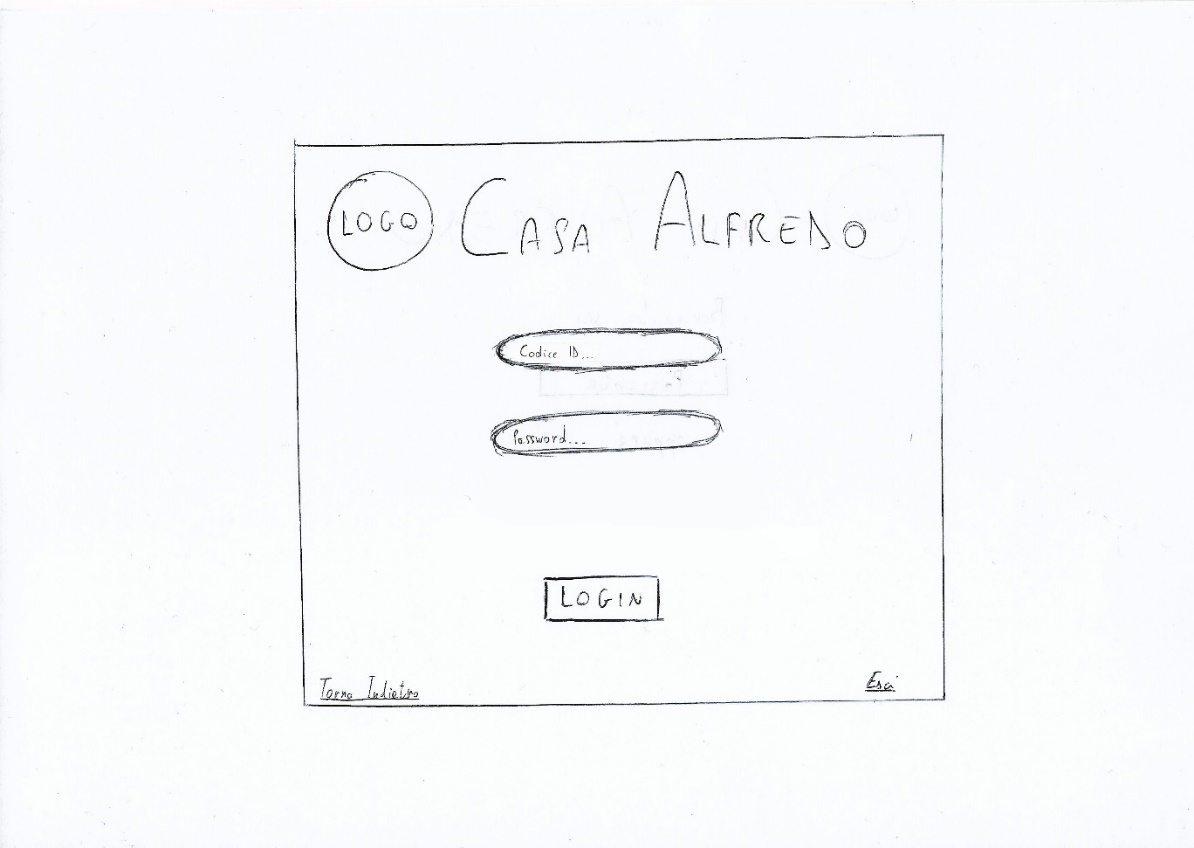 LOGO CASA ALFREDO
Codice ID...
Password...
LOGIN
Torna Indietro Esci